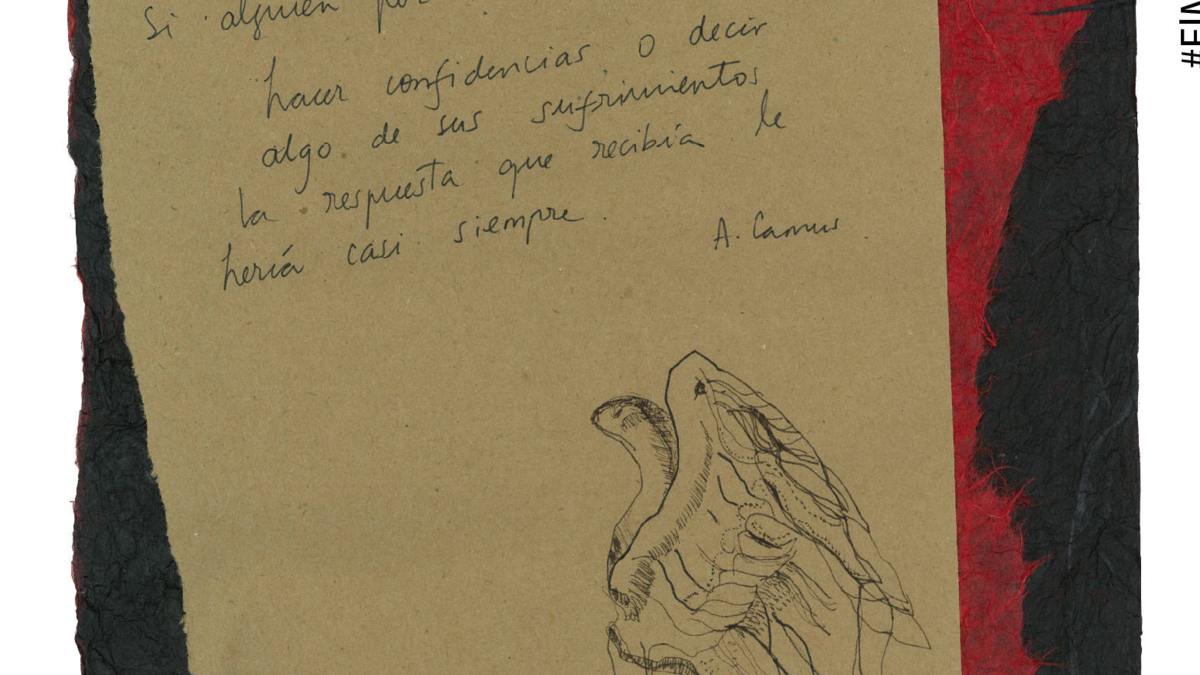 Si alguien por
hacer confidencias o decir
algo de sus sufrimientos,
la respuesta que recibía le
hería casi siempre.
A. Camus.